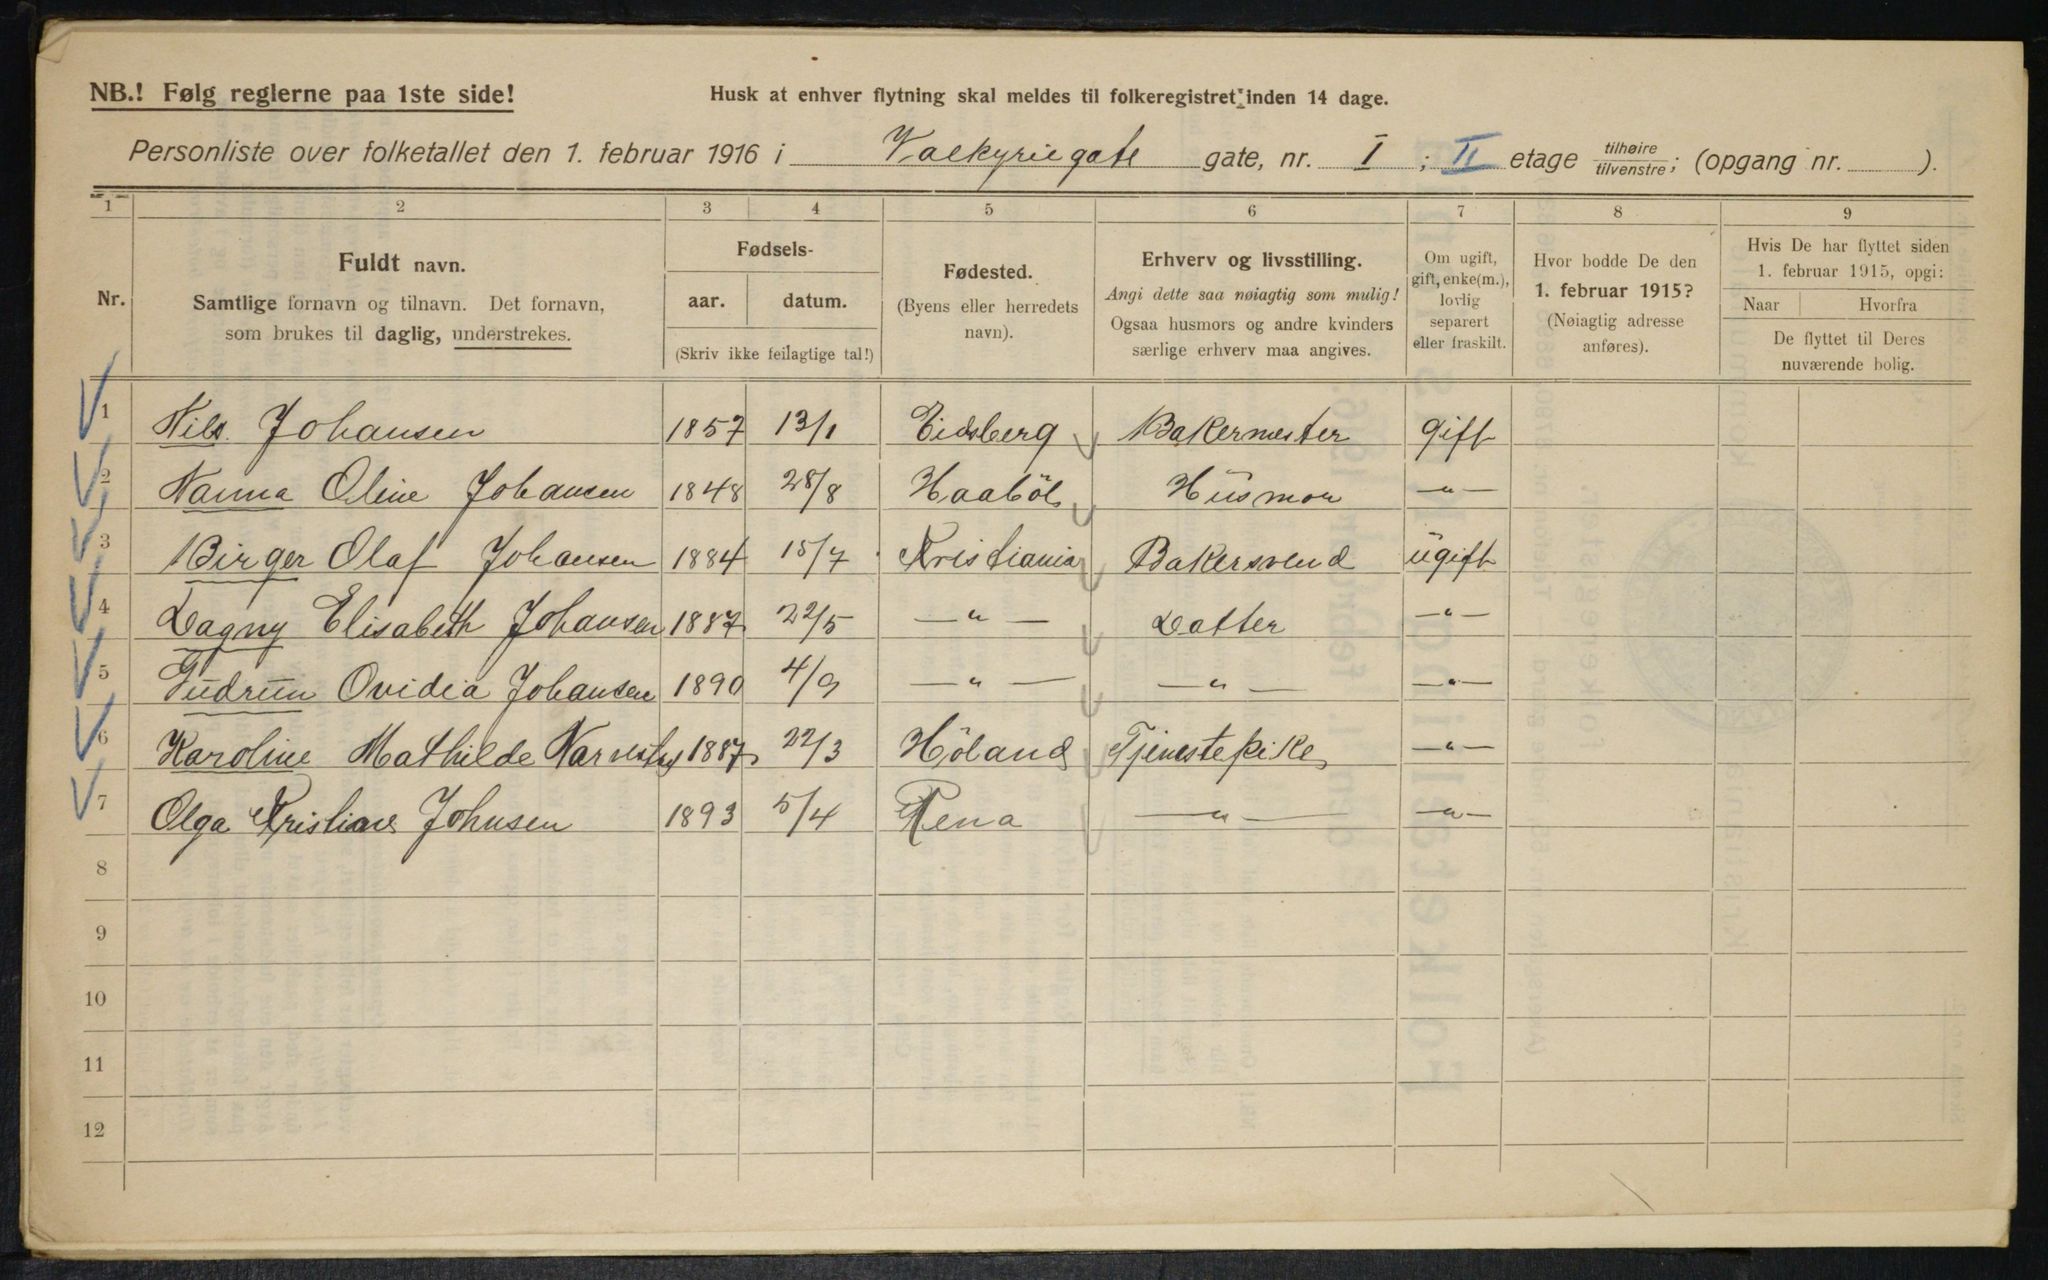 NB.! Følg reglerne paa 1ste side!
Husk at enhver flytning skal meldes til folkeregistret inden 14 dage.
Personliste over folketallet den 1. februar 1916 i Valkyriegate gate, nr. I ; II etage tilhøire/tilvenstre; (opgang nr. ).
1 2 3 4 5 6 7 8 9
Nr.
Fuldt navn.
Samtlige fornavn og tilnavn. Det fornavn,
som brukes til daglig, understrekes.
Fødsels-
aar. datum.
(Skriv ikke feilagtige tal!)
Fødested.
(Byens eller herredets
navn).
Erhverv og livsstilling.
Angi dette saa nøiagtig som mulig!
Ogsaa husmors og andre kvinders
særlige erhverv maa angives.
Om ugift,
gift, enke(m.),
lovlig
separert
eller fraskilt.
Hvor bodde De den
1. februar 1915?
(Nøiagtig adresse
anføres).
Hvis De har flyttet siden
1. februar 1915, opgi:
Naar Hvorfra
De flyttet til Deres
nuværende bolig.
1 Nils Johansen 1857 13/1 Eidsberg Bakermester gift
2 Nanna Oline Johansen 1848 28/8 Haaböl Hüsmor —"—
3 Birger Olaf Johansen 1884 15/7 Kristiania Bakersvend ügift
4 Dagny Elisabeth Johansen 1887 22/5 —"— Datter —"—
5 Güdrün Ovidia Johansen 1890 4/9 —"— —"— —"—
6 Karoline Mathilde 1887 22/3 Höland Tjenestepike —"—
7 Olga Kristiane Johnsen 1893 5/4 Rena —"— —"—
8
9
10
11
12